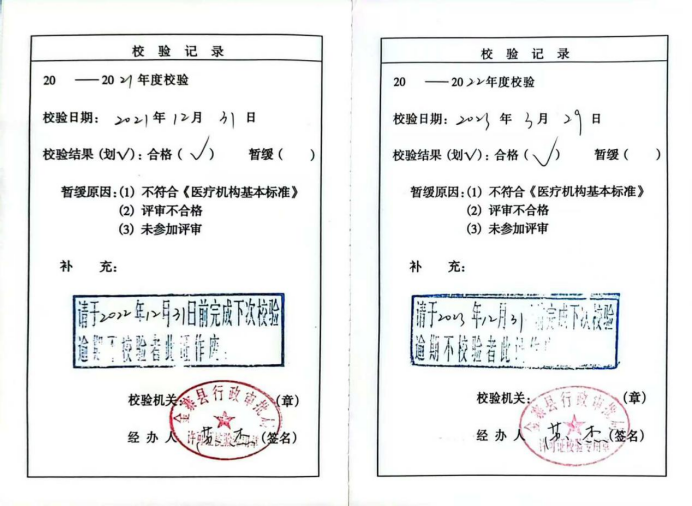 校验记录
20 ——2021年度校验
校验日期：2021年12月31日
校验结果（划√）：合格（√） 暂缓（ ）
暂缓原因：(1) 不符合《医疗机构基本标准》
(2) 评审不合格
(3) 未参加评审
补 充：
请于2022年12月31日前完成下次校验
逾期不校验者此证作废
校验机关： （章）
金寨县行政审批局
许可证校验专用章
经办人 （签名）
校验记录
20 ——2022年度校验
校验日期：2023年3月29日
校验结果（划√）：合格（√） 暂缓（ ）
暂缓原因：(1) 不符合《医疗机构基本标准》
(2) 评审不合格
(3) 未参加评审
补 充：
请于2023年12月31 前完成下次校验
逾期不校验者此证作废
校验机关： （章）
金寨县行政审批局
许可证校验专用章
经办人 （签名）